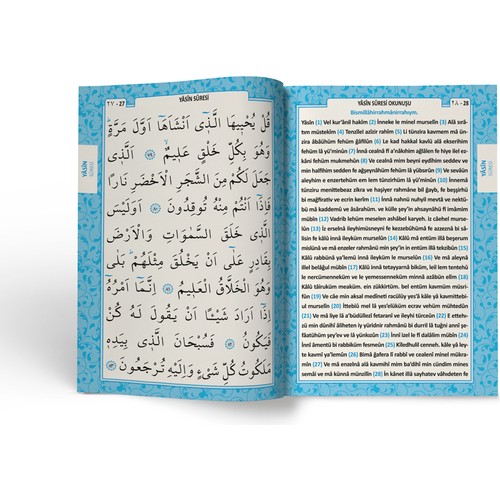 ٢٧ - 27
YÂSÎN SÛRESİ
قُلْ يُحْيِيهَا الَّذٖٓي اَنْشَاَهَٓا اَوَّلَ مَرَّةٍؕ
وَهُوَ بِكُلِّ خَلْقٍ عَلٖيمٌۙ ﴿٧٩﴾ اَلَّذٖي
جَعَلَ لَكُمْ مِنَ الشَّجَرِ الْاَخْضَرِ نَارًا
فَاِذَٓا اَنْتُمْ مِنْهُ تُوقِدُونَ ﴿٨٠﴾ اَوَلَيْسَ
الَّذٖي خَلَقَ السَّمٰوَاتِ وَالْاَرْضَ
بِقَادِرٍ عَلٰٓى اَنْ يَخْلُقَ مِثْلَهُمْؕ بَلٰى
وَهُوَ الْخَلَّاقُ الْعَلٖيمُ ﴿٨١﴾ اِنَّمَٓا اَمْرُهُٓ
اِذَٓا اَرَادَ شَيْـًٔا اَنْ يَقُولَ لَهُ كُنْ
فَيَكُونُ ﴿٨٢﴾ فَسُبْحَانَ الَّذٖي بِيَدِهٖ
مَلَكُوتُ كُلِّ شَيْءٍ وَاِلَيْهِ تُرْجَعُونَ ﴿٨٣﴾
YÂSÎN
SÛRESİ
YÂSÎN SÛRESİ OKUNUŞU
٢٨ - 28
Bismillâhirrahmânirrahıym.
Yâsîn (1) Vel kur'ânil hakîm (2) İnneke le minel murselîn (3) Alâ sırâ-
tım müstekîm (4) Tenzîlel azîzir rahîm (5) Li tünzira kavmem mâ ün-
zira âbâühüm fehüm ğâfilûn (6) Le kad hakkal kavlü alâ ekserihim
fehüm lâ yü'minûn (7) İnnâ cealnâ fî a'nâkıhim ağlâlen fe hiye ilel ez-
kâni fehüm mukmehûn (8) Ve cealnâ mim beyni eydîhim seddev ve
min halfihim sedden fe ağşeynâhum fehüm lâ yübsırûn (9) Ve sevâün
aleyhim e enzertehüm em lem tünzirhüm lâ yü'minûn (10) İnnemâ
tünziru menittebeaz zikra ve haşiyer rahmâne bil ğayb, fe beşşirhü
bi mağfirativ ve ecrin kerîm (11) İnnâ nahnü nuhyil mevtâ ve nektü-
bü mâ kaddemû ve âsârahüm. ve külle şey'in ahsaynâhü fî imâmim
mübîn (12) Vadrib lehüm meselen ashâbel karyeh. iz câehel murse-
lûn (13) İz erselnâ ileyhimüsneyni fe kezzebûhümâ fe azzeznâ bi sâ-
lisin fe kâlû innâ ileyküm murselûn (14) Kâlû mâ entüm illâ beşerum
mislünâ ve mâ enzeler rahmânü min şey'in in entüm illâ tekzibûn (15)
Kâlû rabbünâ ya'lemü innâ ileyküm le murselûn (16) Ve mâ aleynâ
illel belâğul mübîn (17) Kâlû innâ tetayyarnâ biküm, leil lem tentehû
le nercümenneküm ve le yemessenneküm minnâ azâbün elîm (18)
Kâlû tâiruküm meaküm. ein zükkirtüm. bel entüm kavmüm müsri-
fûn (19) Ve câe min aksal medîneti racülüy yes'â kâle yâ kavmittebi-
ul murselîn (20) İttebiû mel lâ yes'elüküm ecrav vehüm mühtedûn
(21) Ve mâ liye lâ a'büdüllezî fetaranî ve ileyhi türceûn (22) E ettehı-
zü min dûnihî âliheten iy yüridnir rahmânü bi durril lâ tuğni annî şe-
fâatühüm şey'ev ve lâ yünkızûn (23) İnnî izel le fî dalâlim mübîn (24)
İnnî âmentü bi rabbiküm fesmeûn (25) Kîledhulil cenneh. kâle yâ ley-
te kavmî ya'lemûn (26) Bimâ ğafera lî rabbî ve cealenî minel mükra-
mîn (27) Ve mâ enzelnâ alâ kavmihî mim ba'dihî min cündim mines
semâi ve mâ künnâ münzilîn (28) İn kânet illâ sayhatev vâhıdeten fe
YÂSÎN
SÛRESİ